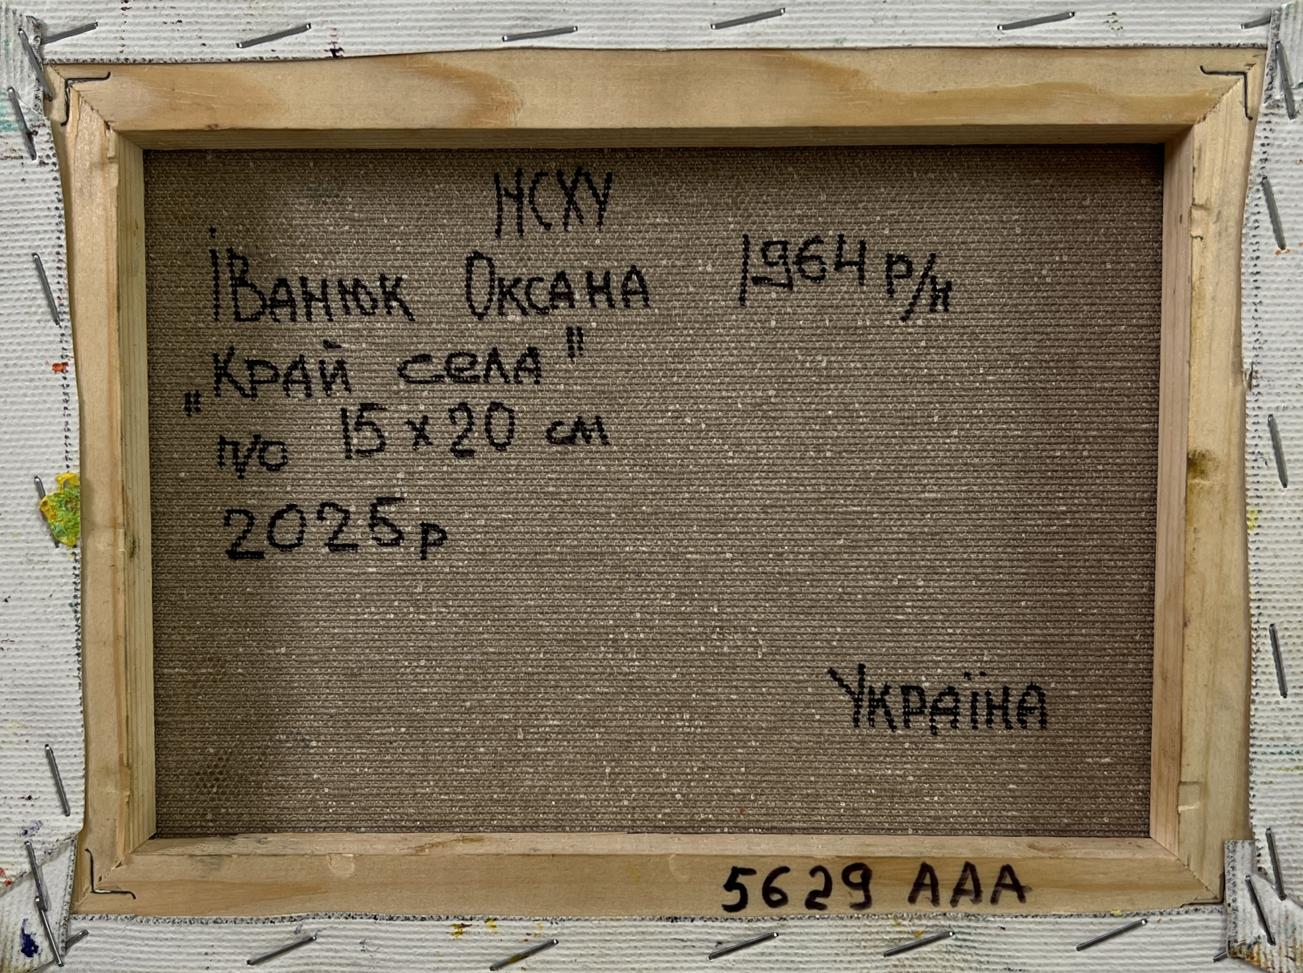 НСХУ
Іванюк Оксана 1964 р/н
„Край села"
п/о 15 х 20 см
2025р
Україна
5629 ААА